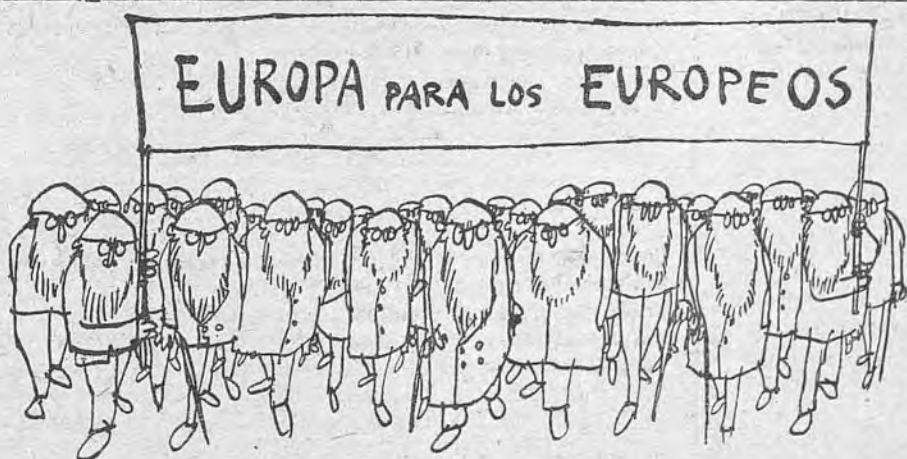 EUROPA PARA LOS EUROPEOS